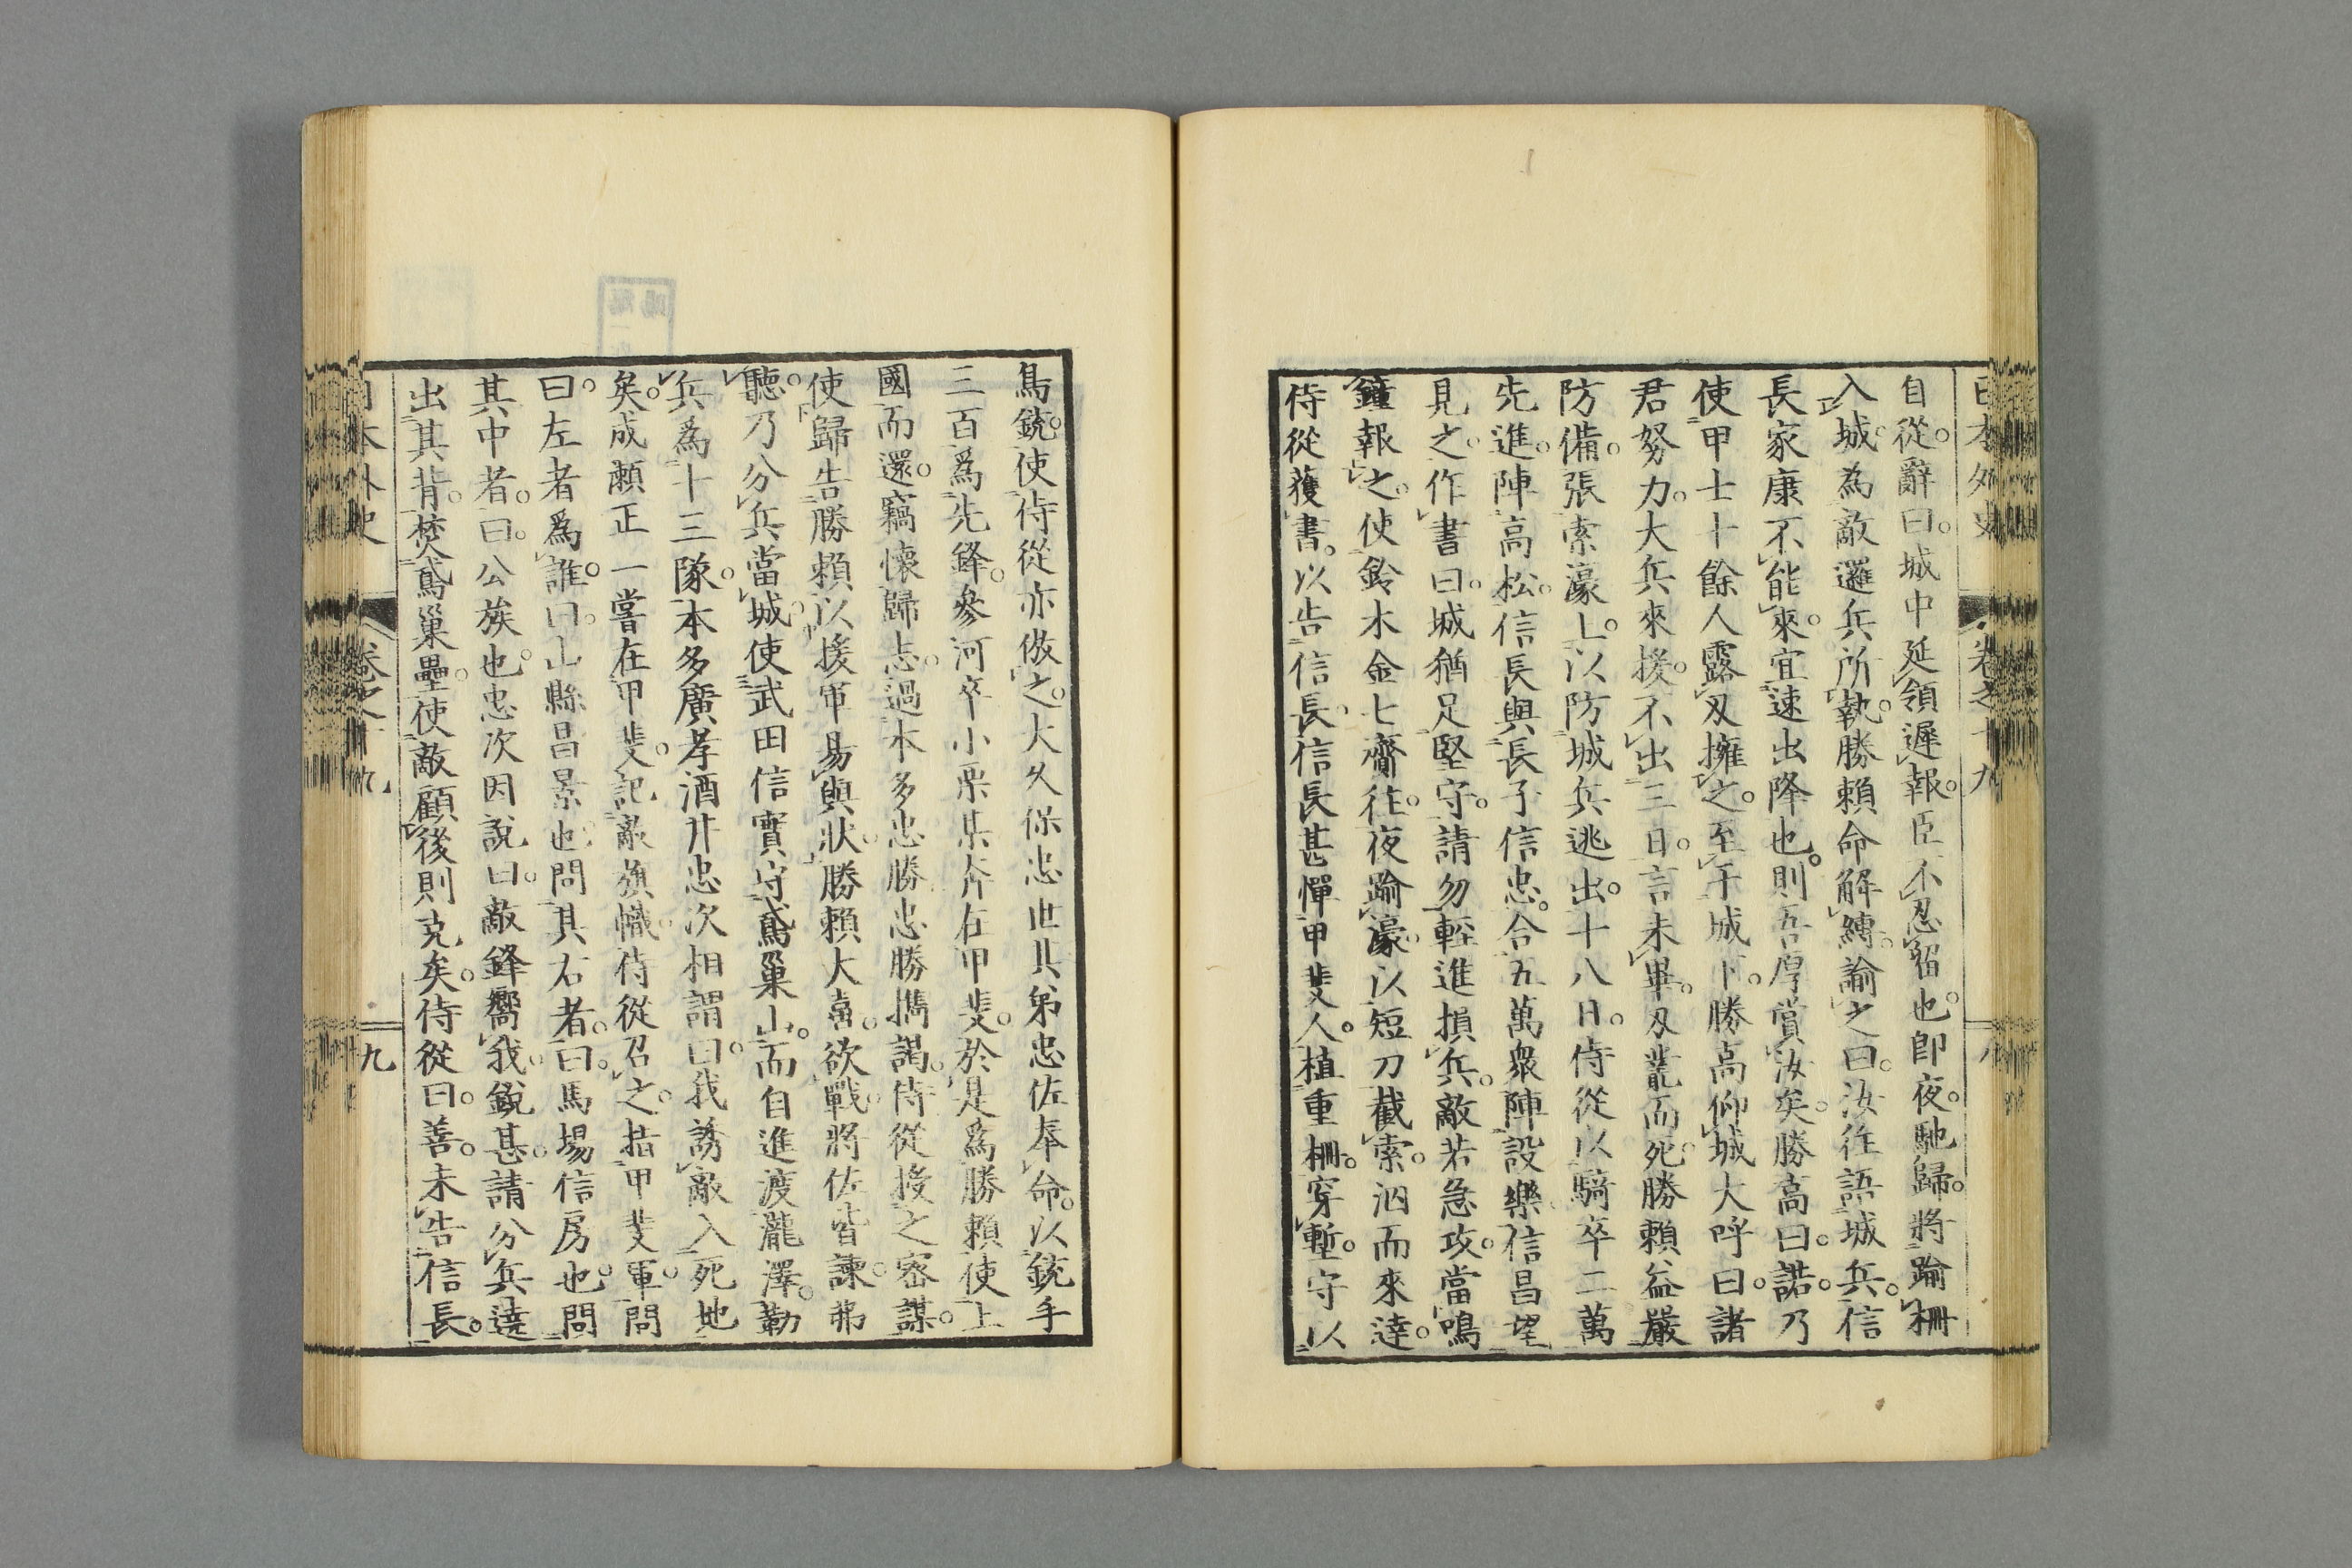 日本外史 卷之十九 八
自從。辭曰。城中延領遲報。臣不忍留也。卽夜。馳歸。將踰柵
入城。爲敵邏兵所執。勝賴命解縛。諭之曰。汝往語城兵。信
長家康不能來。宜速出降也。則吾厚賞汝矣。勝高曰。諾。乃
使甲士十餘人露刄擁之。至于城下。勝高仰城大呼曰。諸
君努力。大兵來援。不出三日。言未畢。刄叢而死。勝賴益嚴
防備。張索濠上。以防城兵逃出。十八日。侍從以騎卒二萬
先進。陣高松。信長與長子信忠。合五萬衆陣設樂。信昌望
見之。作書曰。城猶足堅守。請勿輕進損兵。敵若急攻。當鳴
鐘報之。使鈴木金七齎往。夜踰濠。以短刀截索。泅而來達。
侍從獲書。以告信長。信長甚憚甲斐人。植重柵。穿塹。守以
鳥銃。使侍從亦倣之。大久保忠世其弟忠佐奉命。以銃手
三百爲先鋒。參河卒小栗某奔在甲斐。於是爲勝賴使上
國而還。竊懷歸志。過本多忠勝。忠勝擕謁。侍從授之密謀。
使歸告勝賴以援軍易與狀。勝賴大喜。欲戰。將佐皆諫。弗
聽。乃分兵當城。使武田信實守鳶巢山。而自進渡瀧澤。勒
兵爲十三隊。本多廣孝酒井忠次相謂曰。我誘敵入死地
矣。成瀨正一嘗在甲斐。記敵旗幟。侍從召之。指甲斐軍。問
曰。左者爲誰。曰。山縣昌景也。問其右者。曰。馬場信房也。問
其中者。曰。公族也。忠次因說曰。敵鋒嚮我。銳甚。請分兵遶
出其背。焚鳶巢壘。使敵顧後。則克矣。侍從曰。善。未告信長。
日本外史 卷之十九 九